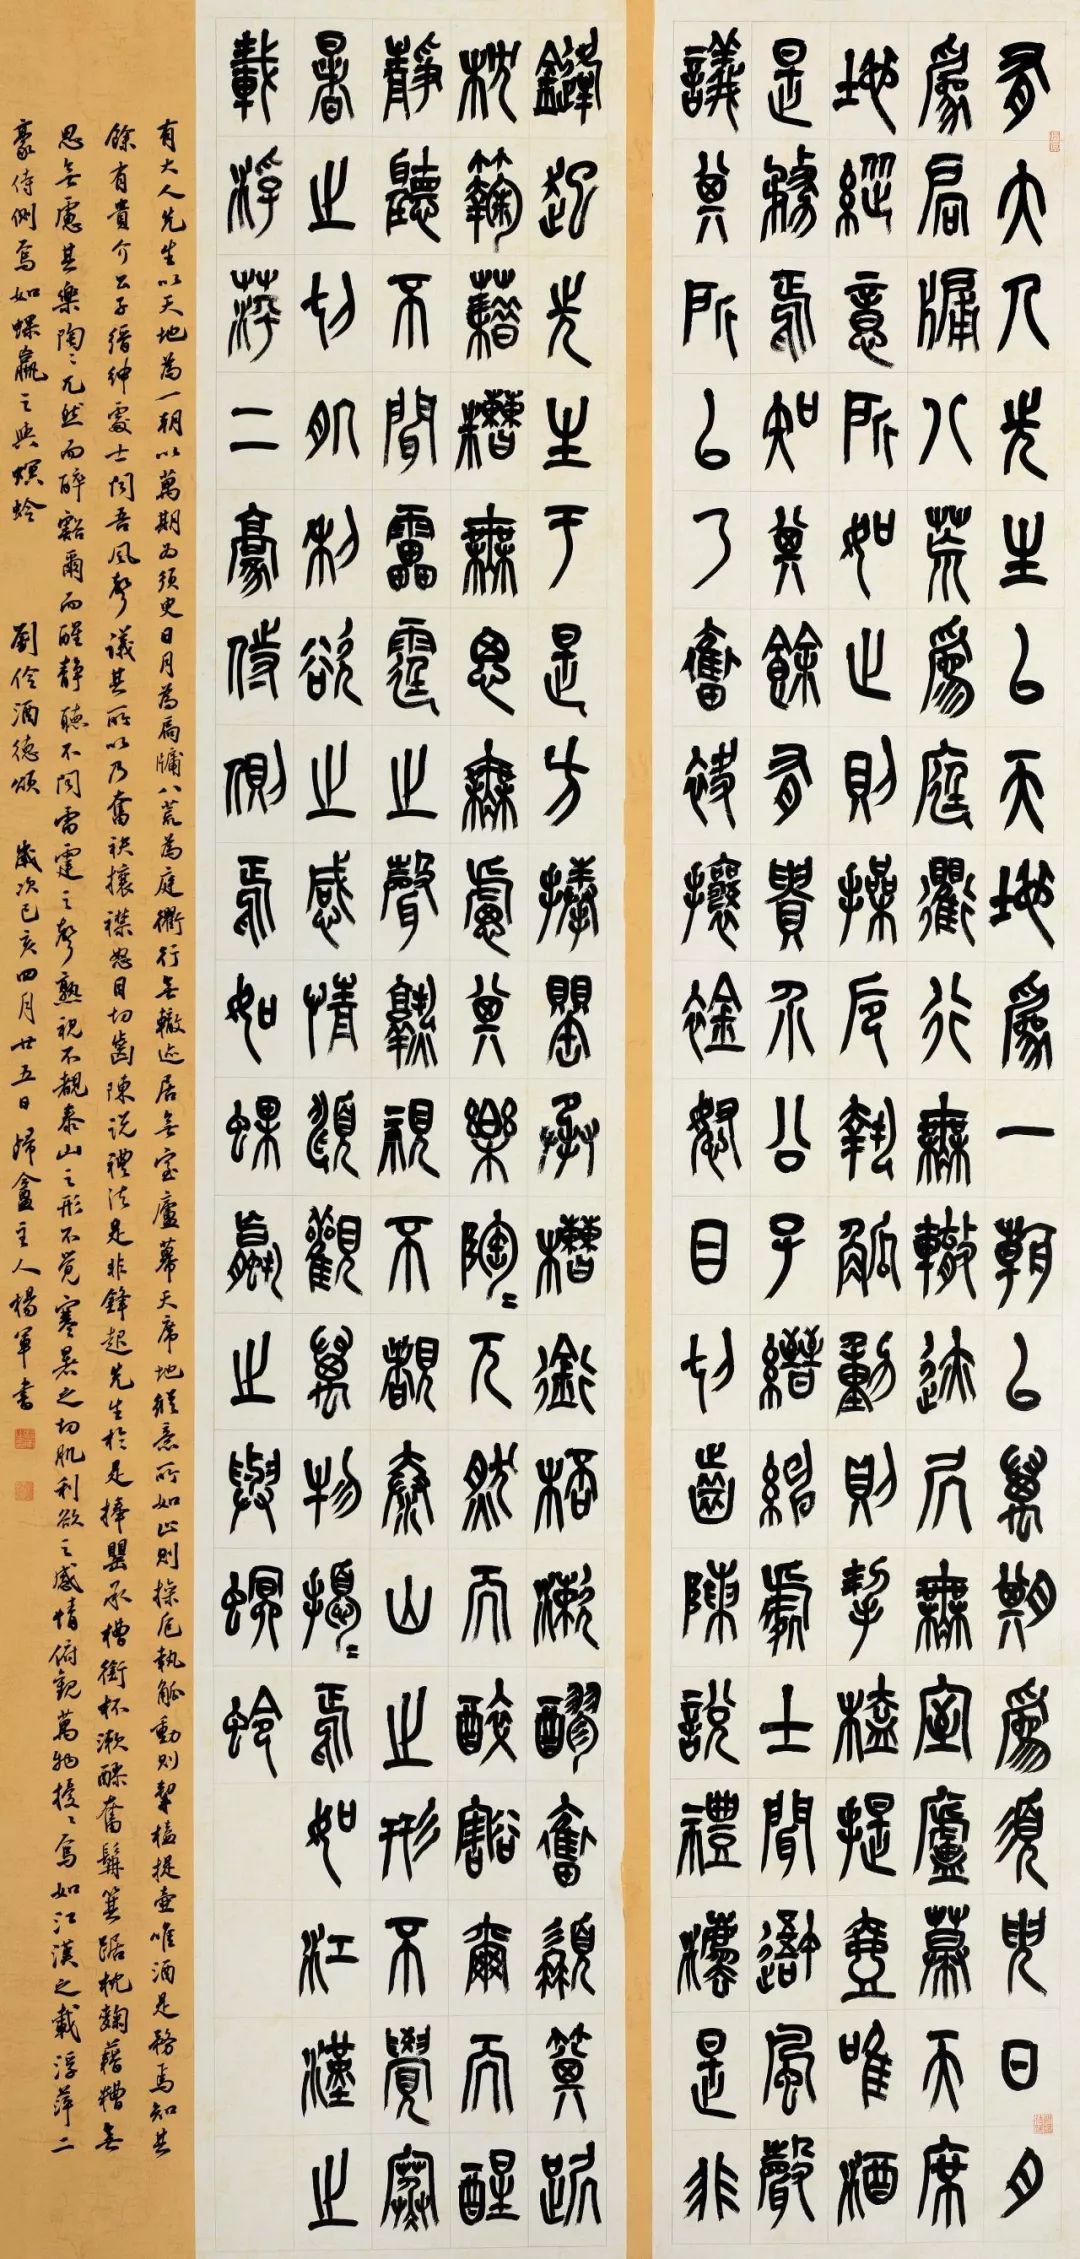 有大人先生以天地為一朝以萬期為須臾日月
為扃牖八荒為庭衢行無轍迹凥無室廬幕天席
地縱意所如止則操卮執觚動則挈榼提壺唯酒
是務焉知其餘有貴介公子縉紳處士聞吾風聲
議其所以乃奮袂攘衿怒目切齒陳說禮法是非
鋒起先生于是方捧罌承槽銜桮漱醪奮髯箕踞
枕麴藉糟無思無慮其樂陶〻兀然而醉豁爾而醒
靜聽不聞雷霆之聲熟視不覩泰山之形不覺寒
暑之切肌利欲之感情俯觀萬物擾〻焉如江漢之
載浮萍二豪侍側焉如蜾蠃之與螟蛉
有大人先生以天地為一朝以萬期為須臾日月為扃牖八荒為庭衢行無轍迹居無室廬幕天席地縱意所如止則操卮執觚動則挈榼提壺唯酒是務焉知其
餘有貴介公子縉紳處士聞吾風聲議其所以乃奮袂攘襟怒目切齒陳說禮法是非鋒起先生於是捧罌承槽銜杯漱醪奮髯箕踞枕麴藉糟無
思無慮其樂陶〻兀然而醉豁爾而醒靜聽不聞雷霆之聲熟視不覩泰山之形不覺寒暑之切肌利欲之感情俯觀萬物擾〻焉如江漢之載浮萍二
豪侍側焉如蜾蠃之與螟蛉 劉伶酒德頌 歲次己亥四月廿五日歸盦主人楊軍書